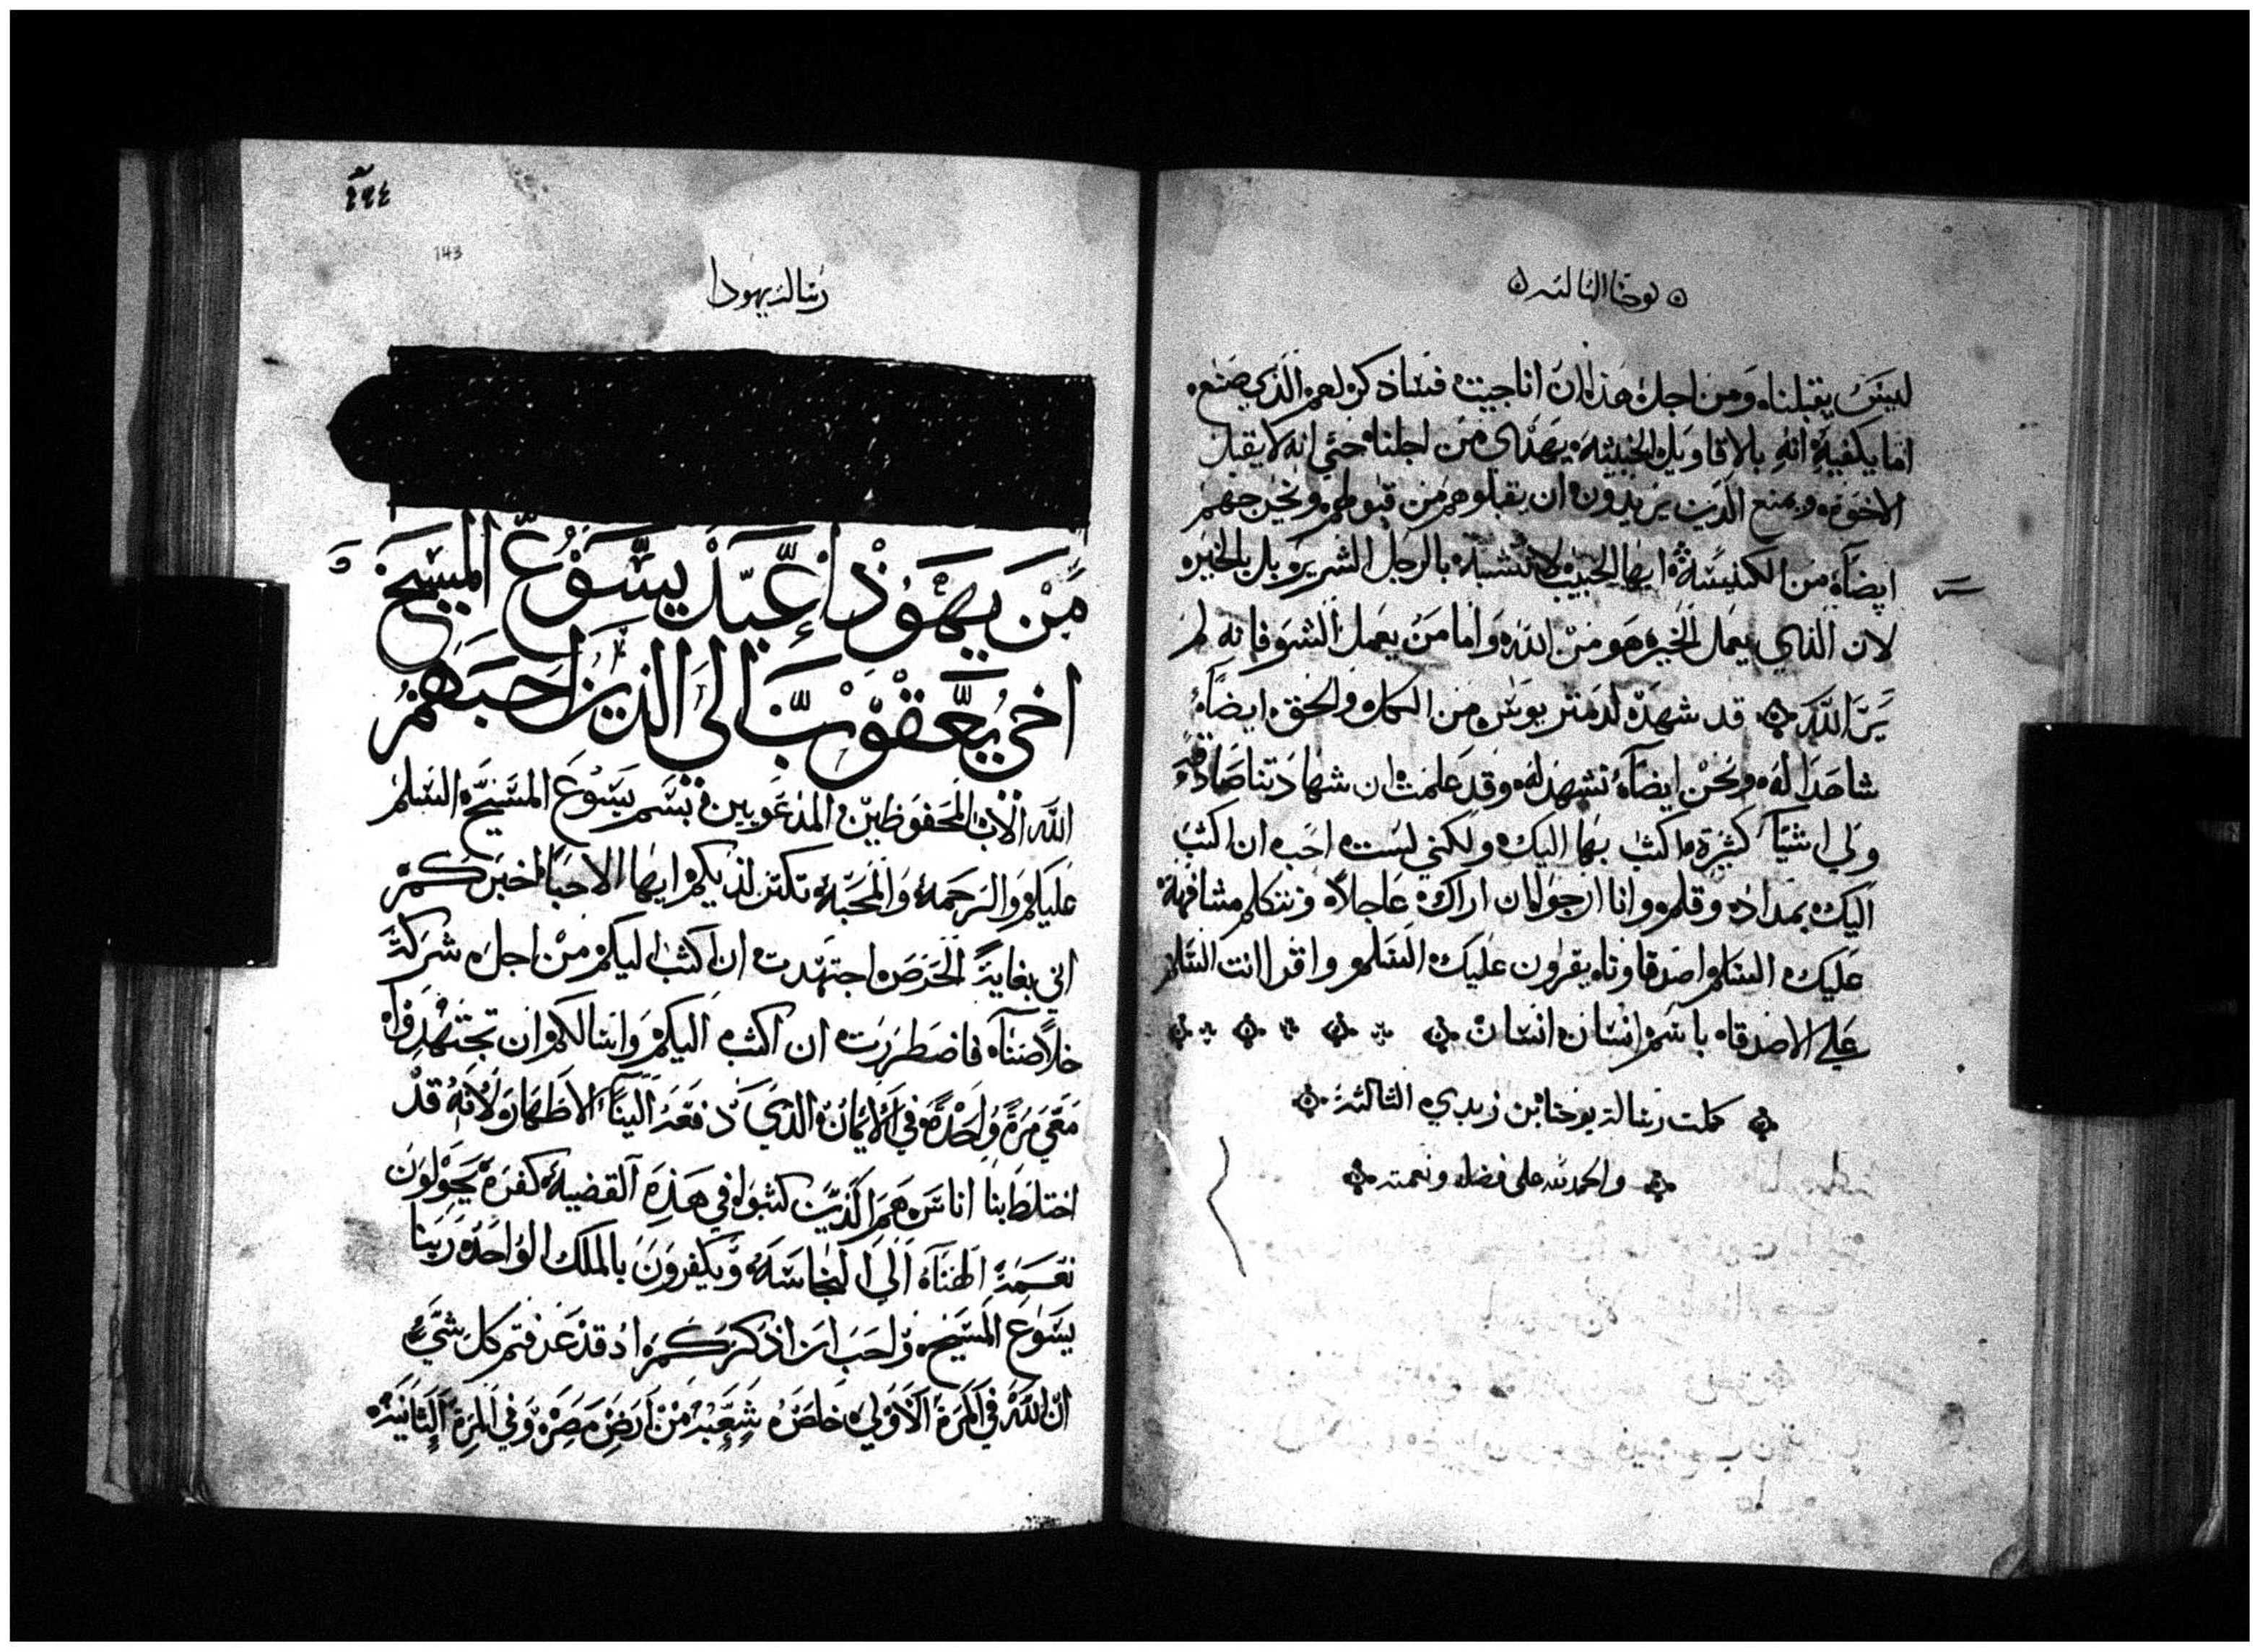 يوحنا الثالثه
ليس يقبلنا ومن اجل هذا ان انا جيت فساذكر لهم الذي صنع
اما يكفيه انه بالاقاويل الخبيثه يهذي من اجلنا حتي انه لا يقبل
الاخوه ويمنع الذين يريدون ان يقبلوهم من قبولهم ويخرجهم
ايضا من الكنيسة ايها الحبيب لا تتشبه بالرجل الشرير بل بالخير
لان الذي يعمل الخير هو من الله واما من يعمل الشر فانه لم
ير الله قد شهد لدمتريوس من الكل والحق ايضا
شاهدا له ونحن ايضا نشهد له وقد علمت ان شهادتنا صادقه
ولي اشيا كثيرة ما كتب بها اليك ولكني لست احب ان اكتب
اليك بمداد وقلم وانا ارجوا ان اراك عاجلا ونتكلم مشافهة
عليك السلم اصدقاوناه يقرون عليك السلم واقرا انت السلام
علي الاصدقاه باسم انسان انسان
كملت رسالة يوحنا بن زبدي الثالثة
والحمد لله على فضله ونعمته
٤
143
رسالة يهودا
من يهوذا عبد يسوع المسيح و
اخي يعقوب الي الذين احبهم
الله الاب المحفوظين المدعويين بسم يسوع المسيح السلم
عليكم والرحمة والمحبة تكتر لديكم ايها الاحبا اخبركم
اني بغاية الحرص اجتهدت ان اكتب اليكم من اجل شركة
خلاصنا فاضطررت ان اكتب اليكم واسالكم ان تجتهدوا
معي مرة واحدة في الايمان الذي دفعه الينا الاطهار ولانه قد
اختلط بنا اناس هم الذين كتبوا في هذه القضية كفره يحولون
نعمة الهنا الي النجاسة ويكفرون بالملك الواحد ربنا
يسوع المسيح واحب ان اذكركم اد قد عرفتم كل شي
ان الله في المرة الاولي خلص شعبه من ارض مصر وفي المرة الثانية